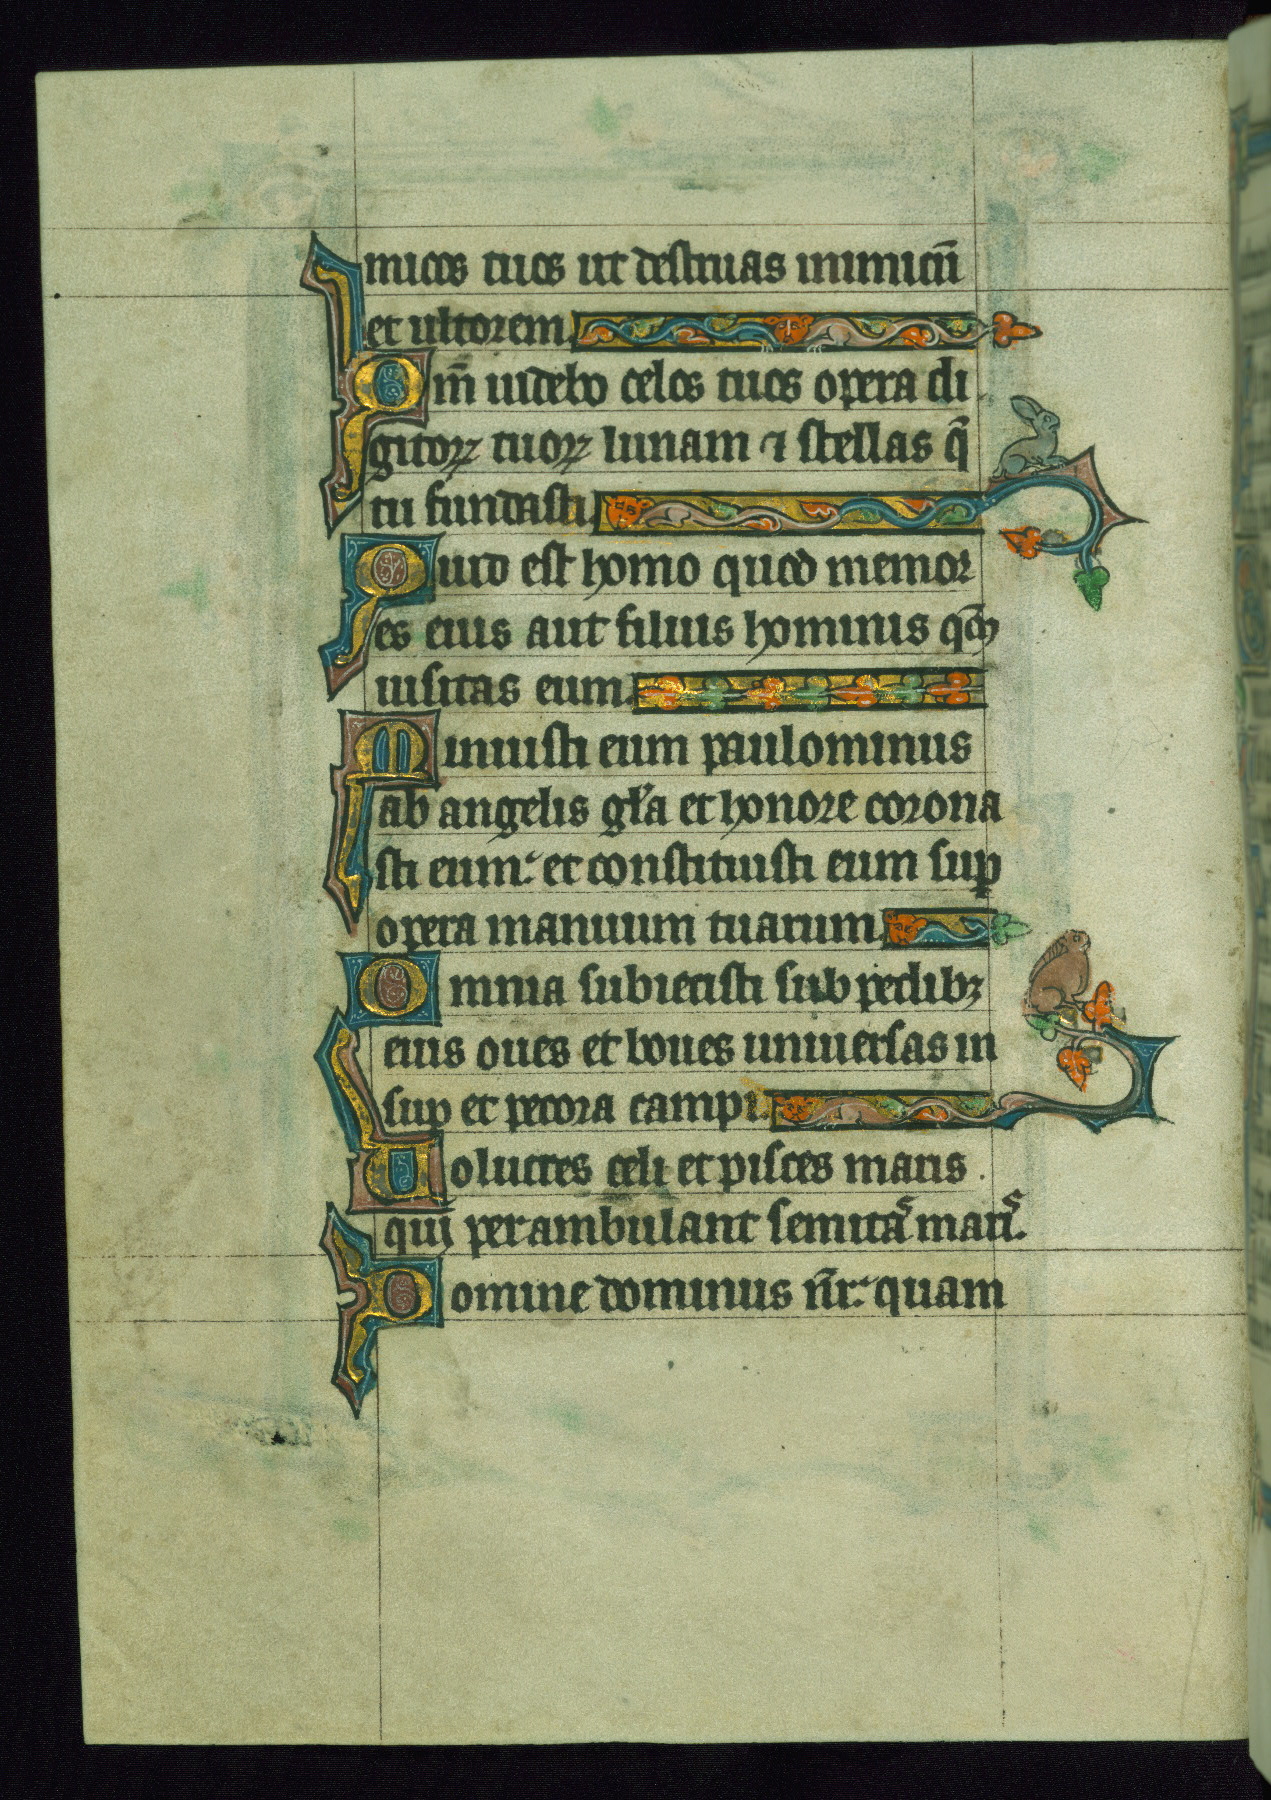 micos tuos ut destruas inimicū
et ultorem
Qm̄ uidebo celos tuos opera di
gitoꝝ tuoꝝ lunam ⁊ stellas q̄
tu fundasti.
Quid est homo quod memor
es eius aut filius hominis qm̄
uisitas eum.
Minuisti eum paulominus
ab angelis gl̄a et honore corona
sti eum: et constituisti eum suꝑ
opera manuum tuarum.
Omnia subiecisti sub pedibꝫ
eius oues et boues uniuersas in
suꝑ et pecora campi.
Uolucres celi et pisces maris .
qui perambulant semitaˢ mariˢ.
Domine dominus nr̄: quam